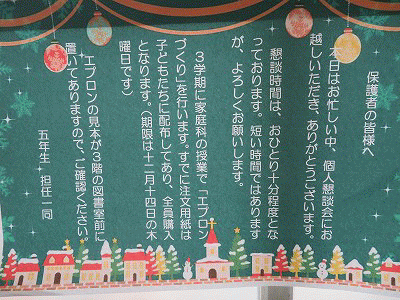 保護者の皆様へ
本日はお忙しい中、個人懇談会にお
越しいただき、ありがとうございます。
懇談時間は、おひとり十分程度とな
っております。短い時間ではあります
が、よろしくお願いします。
3学期に家庭科の授業で「エプロン
づくり」を行います。すでに注文用紙は
子どもたちに配布してあり、全員購入
となります。(期限は十二月十四日の木
曜日です)
エプロンの見本が3階の図書室前に
置いてありますので、ご確認ください。
五年生 担任一同